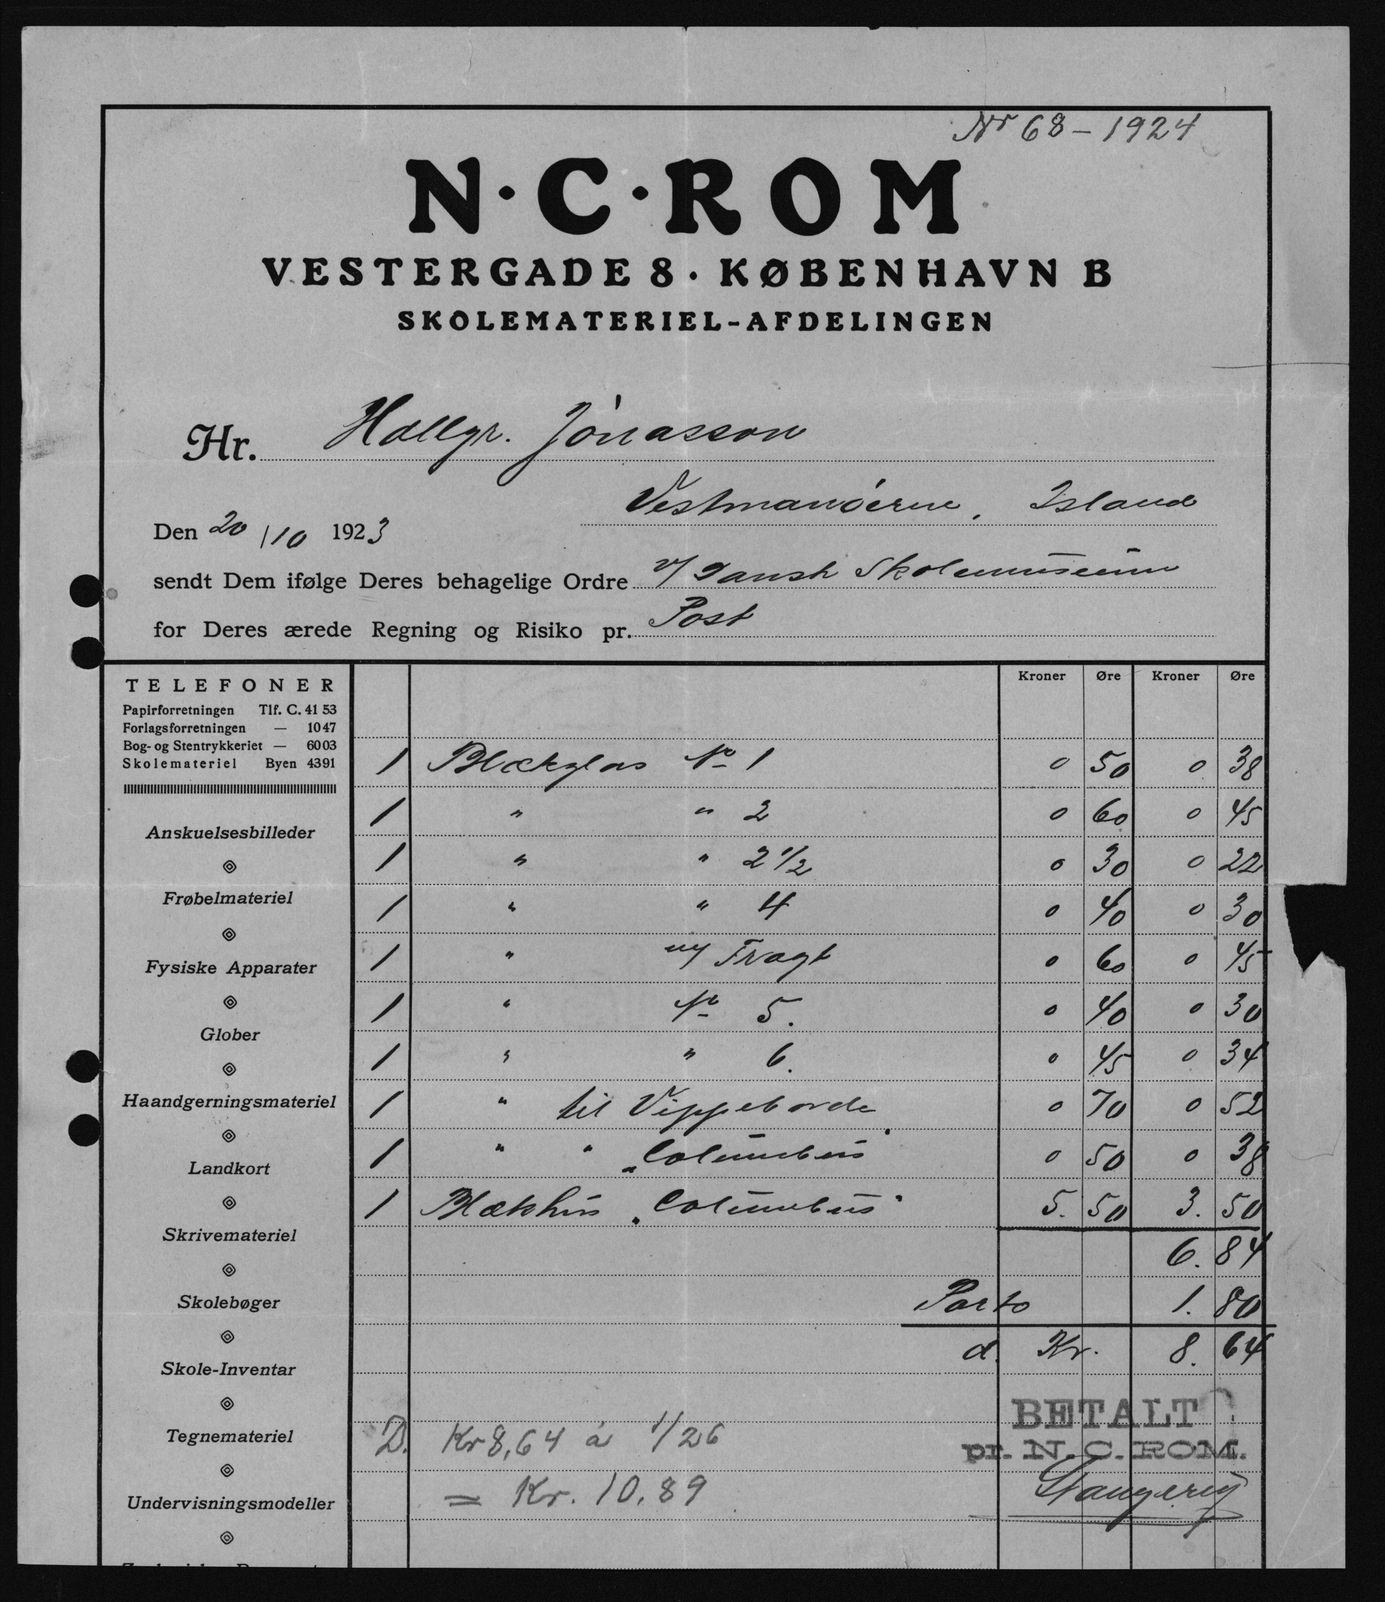 Nr 68 – 1924
N·C·ROM
VESTERGADE 8 · KØBENHAVN B
SKOLEMATERIEL-AFDELINGEN
Hr. Hallgr. Jónasson
Vestmanöerne, Island
Den 20/10 1923
sendt Dem ifølge Deres behagelige Ordre v/ Dansk Skolemuseum
for Deres ærede Regning og Risiko pr. Post
TELEFONER
Papirforretningen Tlf. C. 41 53
Forlagsforretningen — 10 47
Bog- og Stentrykkeriet — 60 03
Skolemateriel Byen 4391
Anskuelsesbilleder
Frøbelmateriel
Fysiske Apparater
Glober
Haandgerningsmateriel
Landkort
Skrivemateriel
Skolebøger
Skole-Inventar
Tegnemateriel
Undervisningsmodeller
Kroner Øre Kroner Øre
1 Blækglas No 1 0 50 0 38
1 " " 2 0 60 0 45
1 " " 2 1/2 0 30 0 22
1 " " 4 0 40 0 30
1 " m/ Tragt 0 60 0 45
1 " No 5. 0 40 0 30
1 " " 6. 0 45 0 34
1 " til Vippeborde 0 70 0 52
1 " " "Columbus" 0 50 0 38
1 Blækhus "Columbus" 5. 50 3. 50
6. 84
Porto 1. 80
d. Kr. 8. 64
BETALT
pr. N. C. ROM.
D. Kr 8,64 á 1/26
= Kr. 10,89